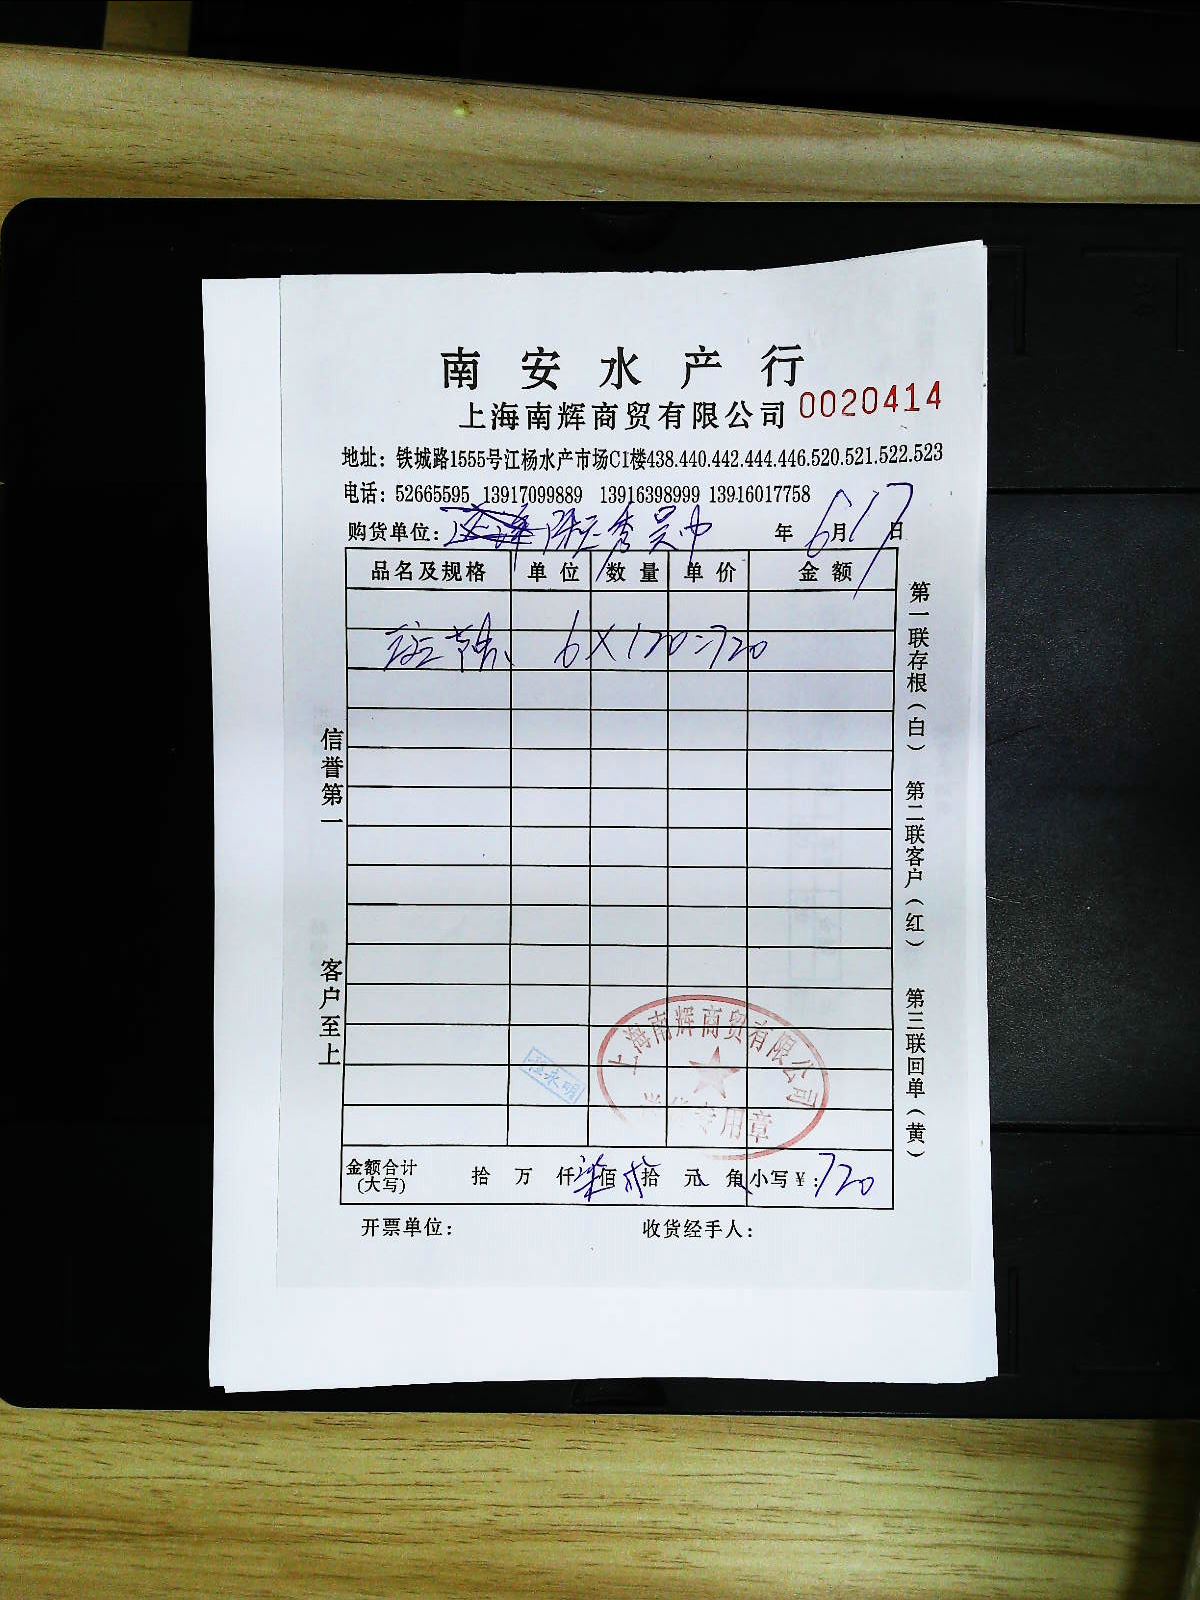 南安水产行
上海南辉商贸有限公司 0020414
地址：铁城路1555号江杨水产市场C1楼438.440.442.444.446.520.521.522.523
电话：52665595 13917099889 13916398999 13916017758
购货单位： 年6月17日
品名及规格 单位 数量 单价 金额
斑节 6×120=720
信誉第一
客户至上
第一联存根（白）
第二联客户（红）
第三联回单（黄）
上海南辉商贸有限公司
专用章
永明
金额合计 拾 万 仟柒佰 拾 元 角 小写￥：720
(大写)
开票单位： 收货经手人：